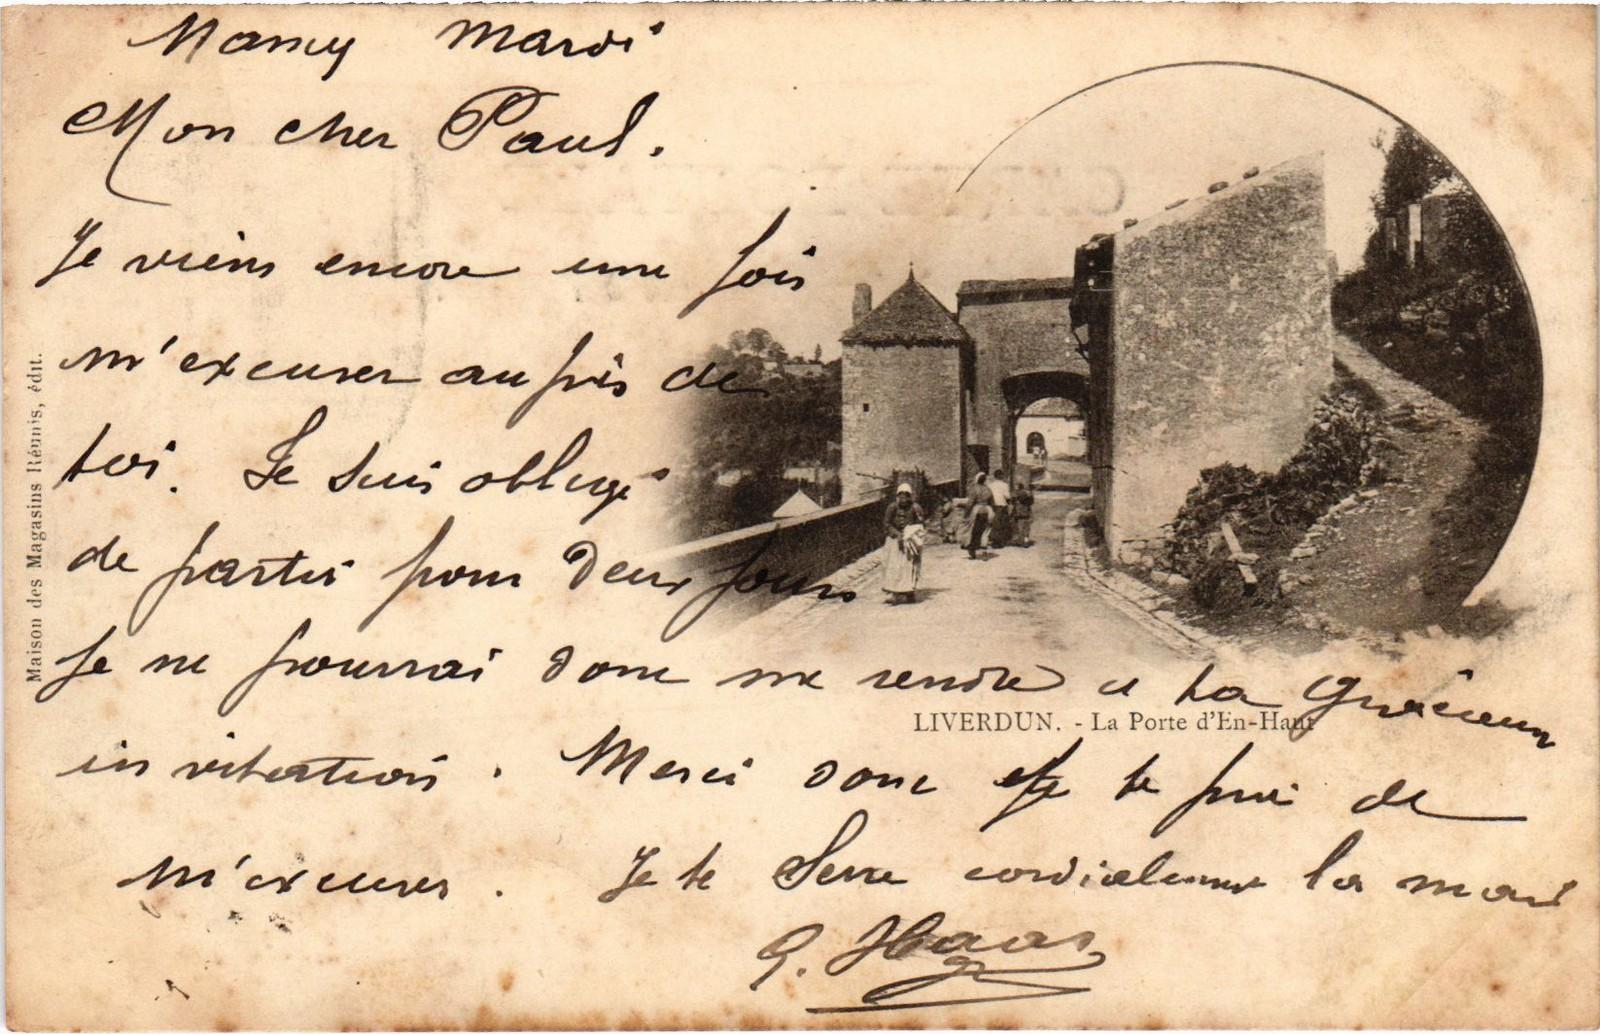 Nancy Mardi
Mon cher Paul.
Je viens encore une fois
m'excuser auprès de
toi. Je suis obligé
de partir pour deux jours
Je ne pourrai donc me rendre à ta gracieuse
invitation. Merci donc et je te prie de
m'excuser. Je te serre cordialement la main
G. Haas
LIVERDUN. - La Porte d'En-Haut
Maison des Magasins Réunis, édit.